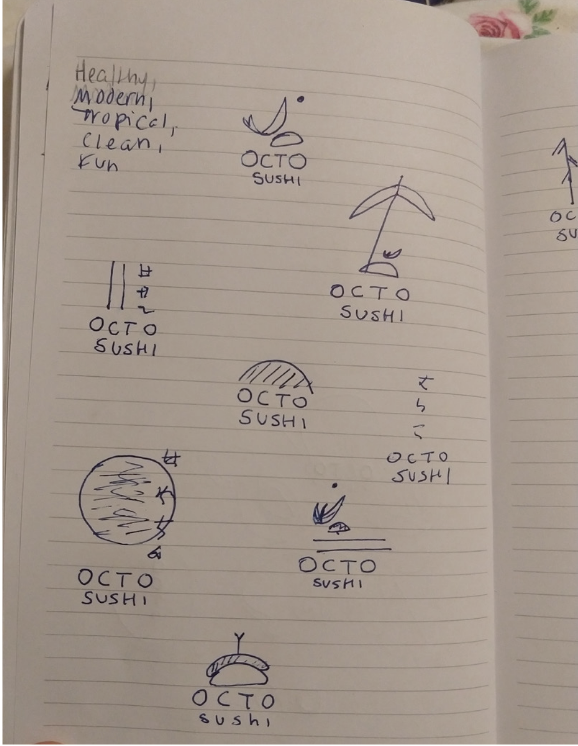 Healthy,
Modern,
Tropical,
Clean,
Fun
OCTO
SUSHI
OCTO
SUSHI
OC
SU
OCTO
SUSHI
OCTO
SUSHI
OCTO
SUSHI
OCTO
SUSHI
OCTO
SUSHI
OCTO
SUSHI